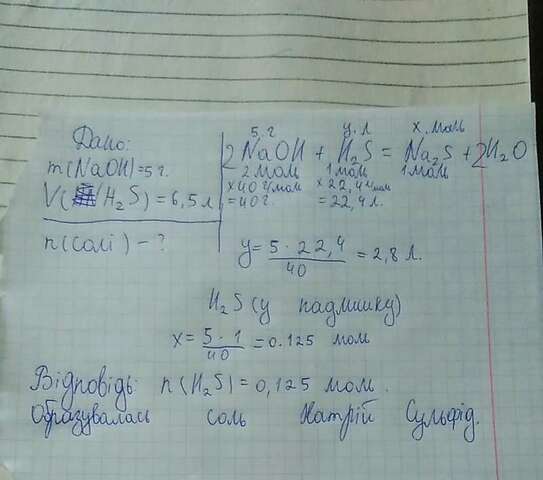 Дано:
m(NaOH)=5г.
V(H₂S)=6,5л
n(солі)-?
5.г y.л x.моль
2NaOH + H₂S = Na₂S + 2H₂O
2моль 1моль 1моль
×40г/моль ×22,4л/моль
=40г. =22,4л.
y= 5·22,4 / 40 = 2,8л.
H₂S (у надлишку)
x= 5·1 / 40 =0.125 моль
Відповідь: n(H₂S)=0,125 моль.
Образувалась соль Натрій Сульфід.